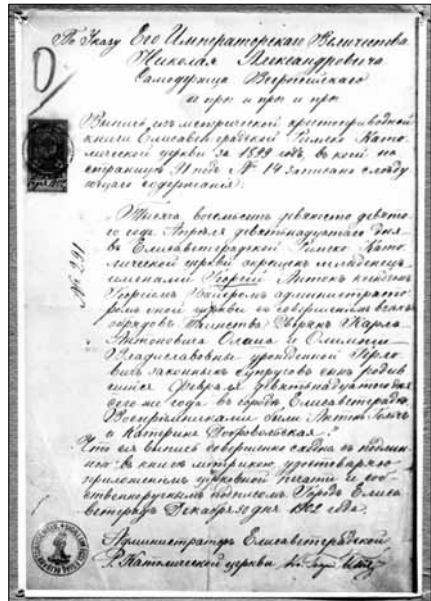 По Указу Его Императорскаго Величества
Николая Александровича
Самодержца Всероссийскаго
и прч и прч и прч
Выпись изъ метрической крестоприводной
книги Елисаветградской Римско Като-
лической церкви за 1899 годъ, въ коей на
страницѣ 91 подъ № 14 записано слѣду
ющаго содержания:
"Тысяча восемьсотъ девяносто девята
го года Апрѣля девятьнадцатаго дня
въ Елисаветградской Римско Като
лической церкви окрещенъ младенецъ
именами Георгий Антонъ ксендзомъ
администрато
ромъ оной церкви съ совершениемъ всѣхъ
обрядовъ Таинства Дворянъ Карла
Антоновича и Олимпии
Владиславовны урожденной
законныхъ супруговъ сынъ родив
шийся Февраля девятьнадцатаго дня
сего же года въ городѣ Елисаветградѣ.
Восприемниками были Антонъ
и Катерина Добровольская."
Что сия выпись совершенно сходна съ подлин
но въ книгѣ метрикою, удостовѣряю
приложениемъ церковной печати и соб-
ственноручнымъ подписомъ. Городъ Елиса
ветградъ Декабря 30 дня 1902 года.
Администраторъ Елисаветградской
Р. Католической церкви
№ 291